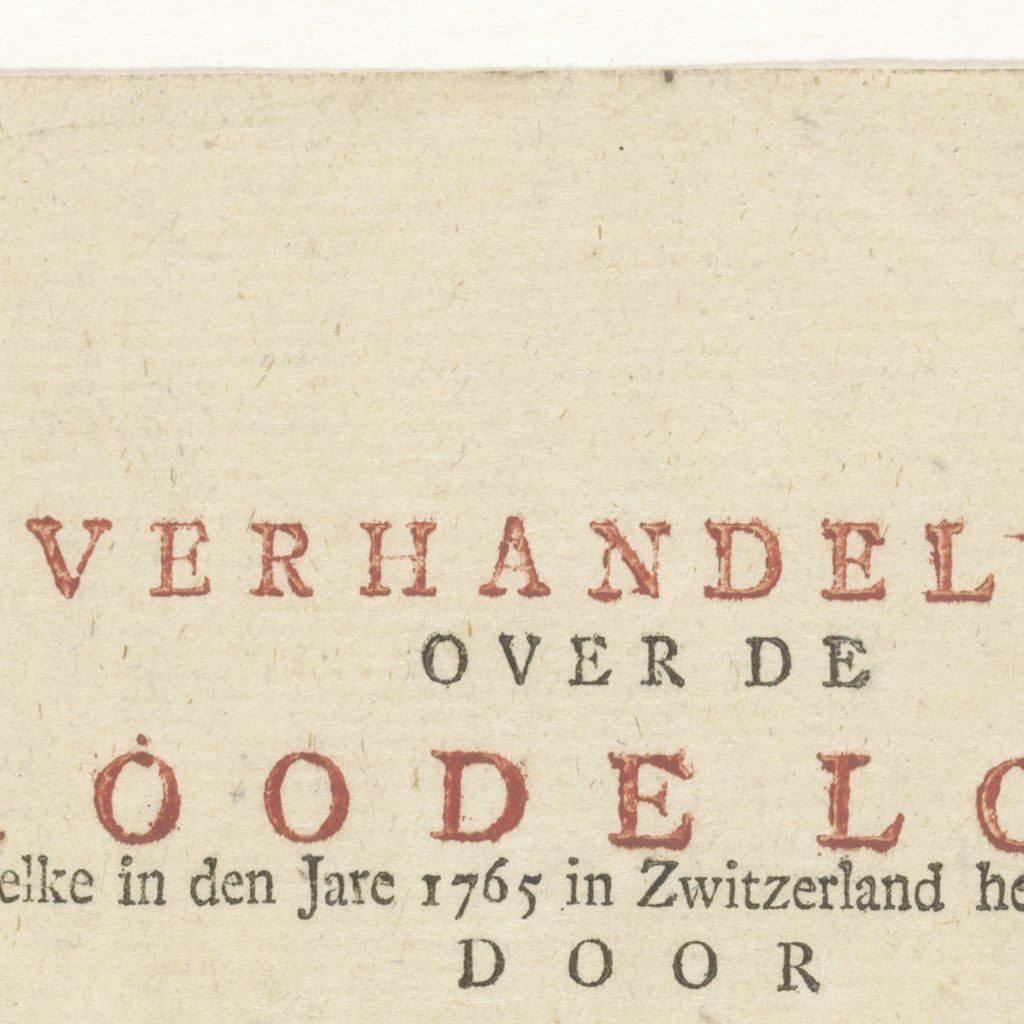 VERHANDEL
OVER DE
OODE LO
elke in den Jare 1765 in Zwitzerland he
DOOR